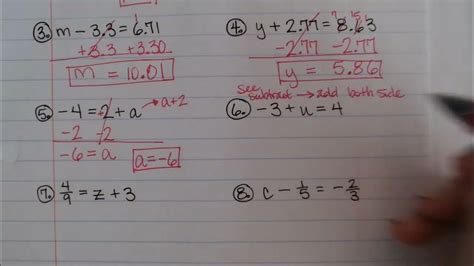 ③ m - 3.3 = 6.71
+3.3 +3.30
m = 10.01
④ y + 2.77 = 8.63
7 15
-2.77 -2.77
y = 5.86
⑤ -4 = 2 + a → a+2
-2 -2
-6 = a a = -6
see subtract → add both side
⑥ -3 + u = 4
⑦ 4/9 = z + 3
⑧ c - 1/5 = -2/3